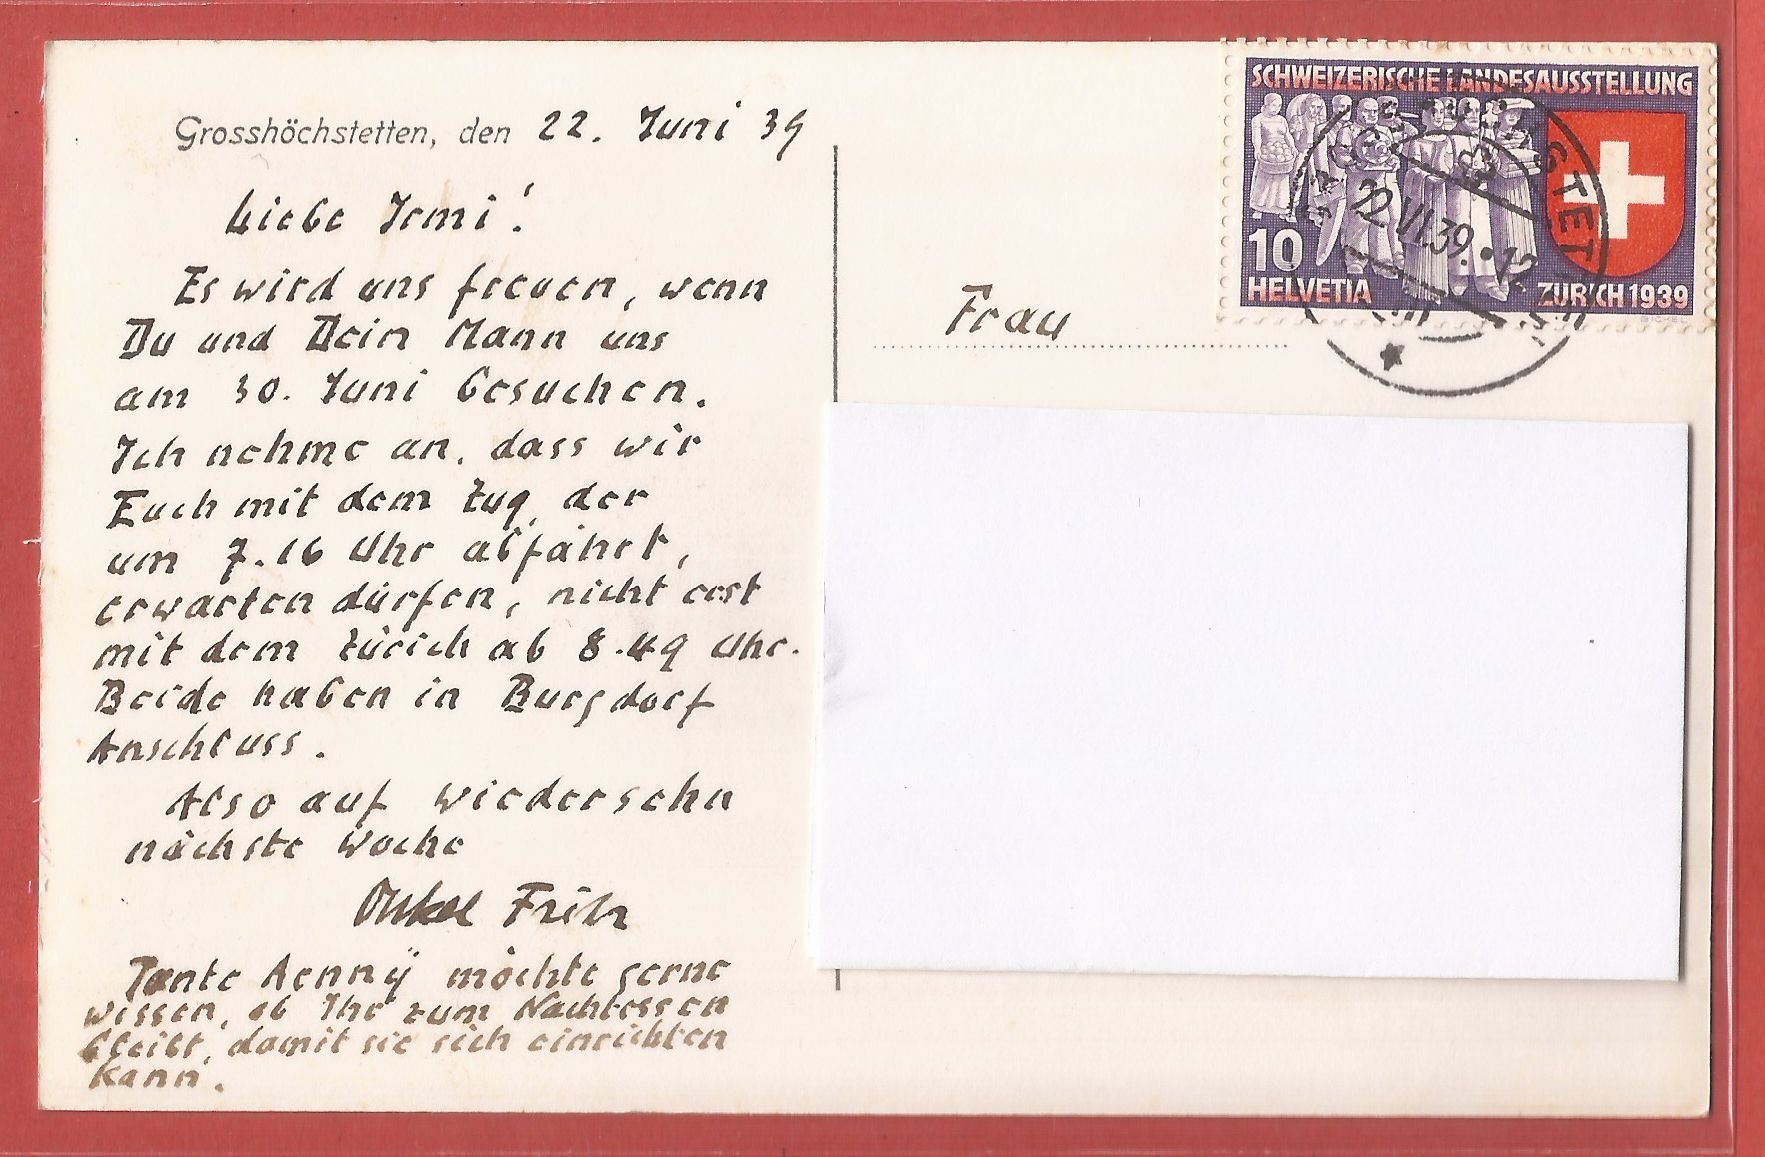 Grosshöchstetten, den 22. Juni 39
Liebe Irmi!
Es wird uns freuen, wenn
Du und Dein Mann uns
am 30. Juni besuchen.
Ich nehme an, dass wir
Euch mit dem Zug, der
um 7.16 Uhr abfährt,
erwarten dürfen, nicht erst
mit dem Zürich ab 8.49 Uhr.
Beide haben in Burgdorf
Anschluss.
Also auf Wiedersehn
nächste Woche
Onkel Fritz
Tante Aenny möchte gerne
wissen, ob Ihr zum Nachtessen
bleibt, damit sie sich einrichten
kann.
Frau
SCHWEIZERISCHE LANDESAUSSTELLUNG
10
HELVETIA
ZÜRICH 1939
22.VI.39.•12